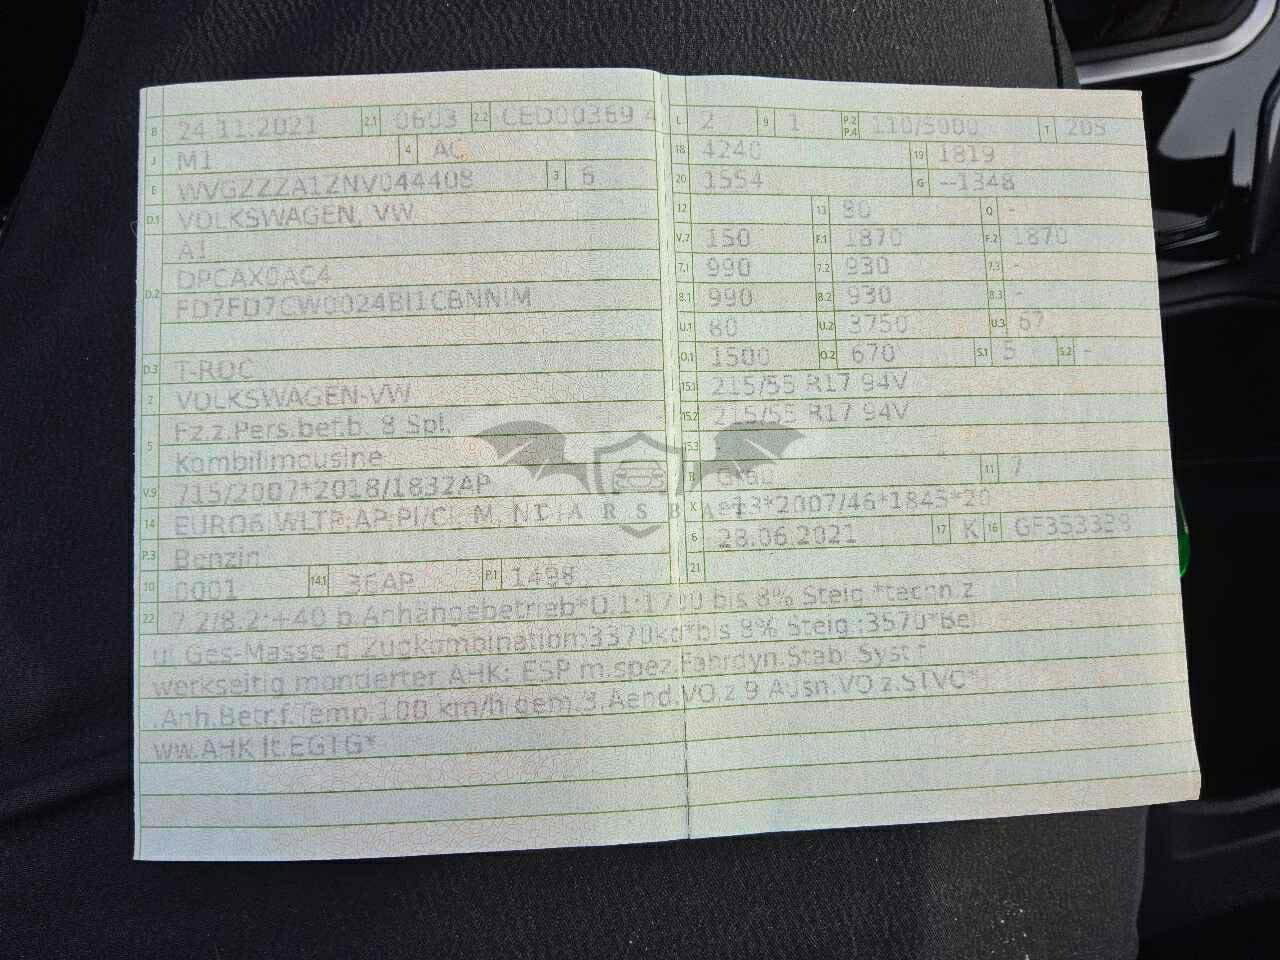 B 24.11.2021 2.1 0603 2.2 CED00369 4
J M1 4 AC
E WVGZZZA1ZNV044408 3 6
D.1 VOLKSWAGEN, VW
A1
D.2 DPCAX0AC4
FD7FD7CW0024BI1CBNNIM
D.3 T-ROC
2 VOLKSWAGEN-VW
5 Fz.z.Pers.bef.b. 8 Spl.
Kombilimousine
V.9 715/2007*2018/1832AP
14 EURO6 WLTP
P.3 Benzin
10 0001 14.1 36AP P.1 1498
L 2 9 1 P.2 P.4 110/5000 T 205
18 4240 19 1819
20 1554 G --1348
12 13 80 Q -
V.7 150 F.1 1870 F.2 1870
7.1 990 7.2 930 7.3 -
8.1 990 8.2 930 8.3 -
U.1 80 U.2 3750 U.3 67
O.1 1500 O.2 670 S.1 5 S.2 -
15.1 215/55 R17 94V
15.2 215/55 R17 94V
15.3
R 11 7
K e13*2007/46*1845*20
6 28.06.2021 17 K 16 GF353329
21
22 7.2/8.2:+40 b.Anhängebetrieb*O.1:1700 bis 8% Steig.*techn.z
ul.Ges-Masse d.Zugkombination:3370kg*bis 8% Steig.:3570*Bei
werkseitig montierter AHK: ESP m.spez.Fahrdyn.Stab.Syst.f
.Anh.Betr.f.Temp.100 km/h gem.3.Aend.VO.z.9.Ausn.VO.z.STVO*
ww.AHK lt.EGTG*
CARSBAT